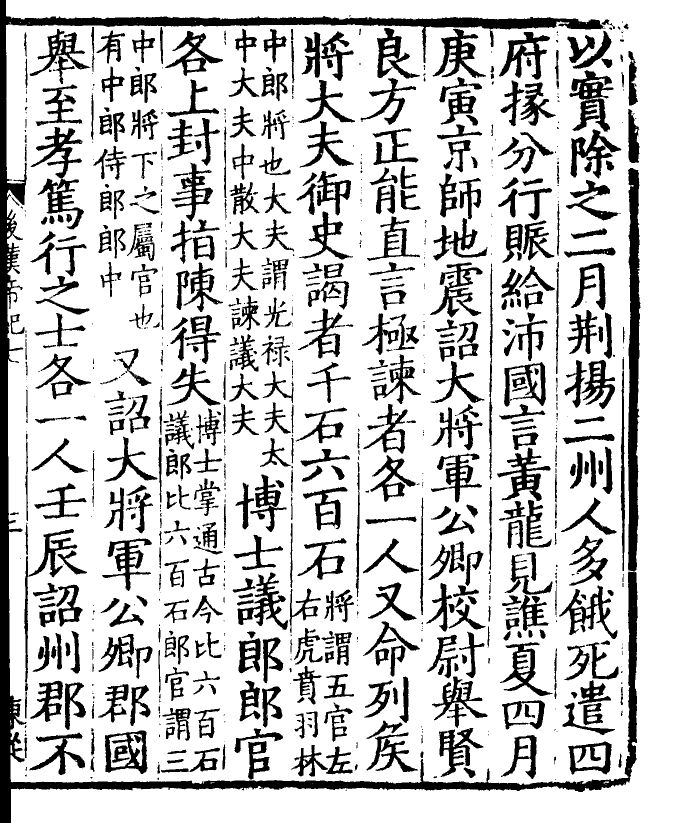 以實除之二月荆揚二州人多餓死遣四
府掾分行賑給沛國言黃龍見譙夏四月
庚寅京師地震詔大將軍公卿校尉舉賢
良方正能直言極諫者各一人又命列矦
將大夫御史謁者千石六百石
將謂五官左
右虎賁羽林
中郎將也大夫謂光禄大夫太
中大夫中散大夫諫議大夫
博士議郎郎官
各上封事指陳得失
博士掌通古今比六百石
議郎比六百石郎官謂三
中郎將下之屬官也
有中郎侍郎郎中
又詔大將軍公卿郡國
舉至孝篤行之士各一人壬辰詔州郡不
後漢帝紀七
三